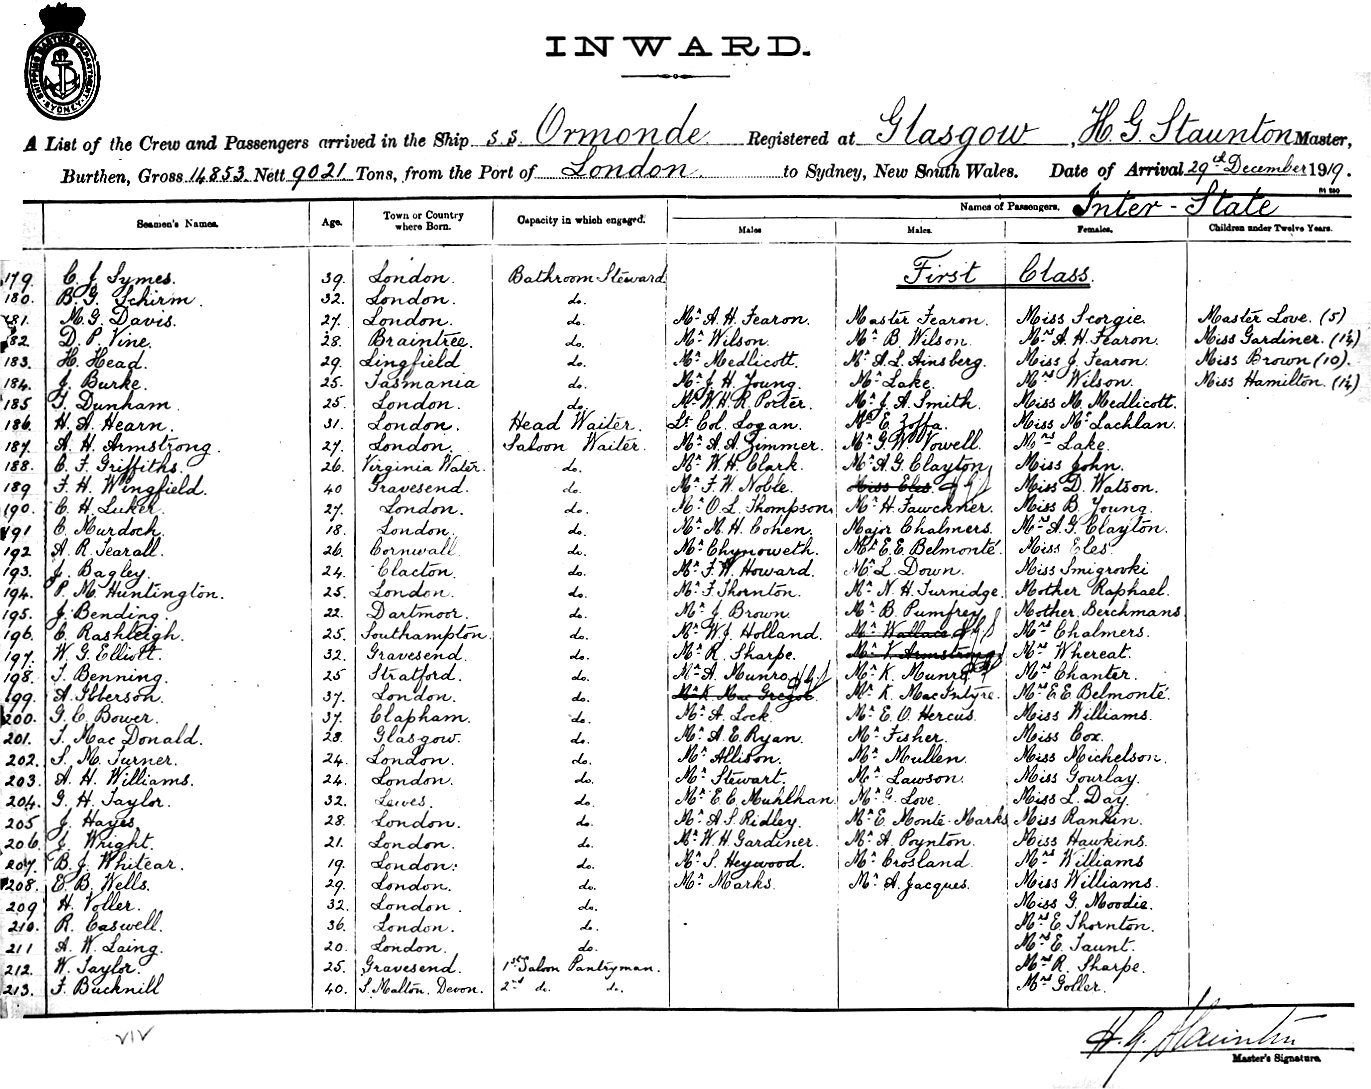 SHIPPING MASTERS DEPARTMENT SYDNEY
INWARD.
A List of the Crew and Passengers arrived in the Ship S.S. Ormonde. Registered at Glasgow, H. G. Staunton Master,
Burthen, Gross 14853. Nett 9021 Tons, from the Port of London. to Sydney, New South Wales. Date of Arrival 29th December 1919.
Names of Passengers. Inter-State
Seamen's Names. Age. Town or Country where Born. Capacity in which engaged. Males Males. Females. Children under Twelve Years.
First Class.
179. C. J. Symes. 39. London. Bathroom Steward
180. B. G. Schirm. 32. London. do.
181. M. G. Davis. 27. London. do. Mr. A. H. Fearon. Master Fearon. Miss Scorgie. Master Love. (5)
182. D. P. Vine. 28. Braintree. do. Mr. Wilson. Mr. B. Wilson. Mrs. A. H. Fearon. Miss Gardiner. (1½)
183. H. Head. 29. Lingfield. do. Mr. Medlicott. Mr. A. L. Ainsberg. Miss J. Fearon. Miss Brown (10).
184. J. Burke. 25. Tasmania do. Mr. J. H. Young. Mr. Lake. Mrs. Wilson. Miss Hamilton. (1½)
185 T. Dunham. 25. London. do. Mr. W. H. R. Porter. Mr. J. A. Smith. Miss M. Medlicott.
186. H. A. Hearn. 31. London. Head Waiter. Lt. Col. Logan. Mr. E. Zoffa. Miss McLachlan.
187. A. H. Armstrong. 27. London. Saloon Waiter. Mr. A. A. Zimmer. Mr. G. W. Vowell. Mrs. Lake.
188. C. F. Griffiths. 26. Virginia Water. do. Mr. W. H. Clark. Mr. A. G. Clayton Miss John.
189 F. H. Wingfield. 40 Gravesend. do. Mr. F. W. Noble. Miss Eles. Miss D. Watson.
190. C. H. Luker. 27. London. do. Mr. O. L. Thompson. Mr. H. Fawckner. Miss B. Young.
191 C. Murdoch. 18. London. do. Mr. M. H. Cohen. Major Chalmers. Mrs. A. G. Clayton.
192 A. R. Searall. 26. Cornwall do. Mr. Chynoweth. Mr. E. E. Belmonté. Miss Eles
193. J. Bagley. 24. Clacton. do. Mr. F. W. Howard. Mr. L. Down. Miss Smigrovki
194. P. M. Huntington. 25. London. do. Mr. F. Thornton. Mr. N. H. Turnidge. Mother Raphael.
195. J. Bending. 22. Dartmoor. do. Mr. J. Brown. Mr. B. Pumfrey. Mother Berchmans
196. C. Rashleigh. 25. Southampton. do. Mr. W. J. Holland. Mr. Wallace Mrs. Chalmers.
197. W. G. Elliott. 32. Gravesend. do. Mr. R. Sharpe. Mr. V. Armstrong Mrs. Whereat.
198. T. Benning. 25 Stratford. do. Mr. A. Munro Mr. K. Munro Mrs. Chanter.
199. A. Ibberson. 37. London. do. Mr. K. MacGregor Mr. K. MacIntyre. Mrs. E. E. Belmonté.
200. G. C. Bower. 37. Clapham. do. Mr. A. Lock. Mr. E. O. Hercus. Miss Williams.
201. T. MacDonald. 28. Glasgow. do. Mr. A. E. Ryan. Mr. Fisher. Miss Cox.
202. S. M. Turner. 24. London. do. Mr. Allison. Mr. Mullen. Miss Michelson.
203. A. H. Williams. 24. London. do. Mr. Stewart. Mr. Lawson. Miss Gourlay.
204. G. H. Taylor. 32. Lewes. do. Mr. E. C. Muhlhan. Mr. G. Love. Miss L. Day.
205 J. Hayes. 28. London. do. Mr. A. S. Ridley. Mr. E. Monte-Marks Miss Rankin.
206 J. Wright. 21. London. do. Mr. W. H. Gardiner. Mr. A. Poynton. Miss Hawkins.
207. B. J. Whitear. 19. London. do. Mr. S. Heywood. Mr. Crosland. Mrs. Williams
208. E. B. Wells. 29. London. do. Mr. Marks. Mr. A. Jacques. Miss Williams.
209 H. Voller. 32. London. do. Miss G. Moodie.
210. R. Caswell. 36. London. do. Mrs. E. Thornton.
211 A. W. Laing. 20. London. do. Mrs. E. Taunt.
212. W. Taylor. 25. Gravesend. 1st Saloon Pantryman. Mrs. R. Sharpe.
213. F. Bucknill 40. S. Malton. Devon. 2nd do. do. Mrs. Goller.
H. G. Staunton
Master's Signature.